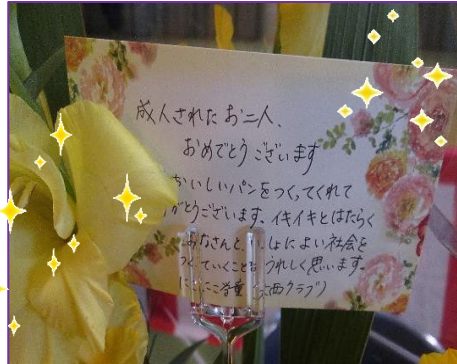 成人されたお二人、
おめでとうございます
おいしいパンをつくってくれて
がとうございます。イキイキとはたらく
みなさんと いっしょによい社会を
つくっていくことを うれしく思います。
にこにこ
クラブ)